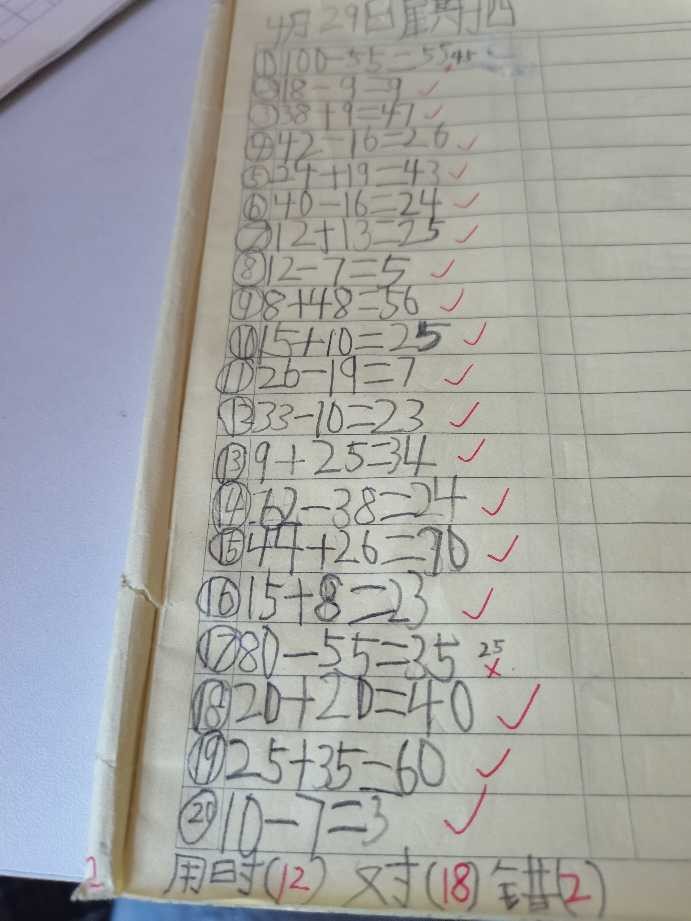 4月29日星期四
①100-55=55 45
②18-9=9 ✓
③38+9=47 ✓
④42-16=26 ✓
⑤24+19=43 ✓
⑥40-16=24 ✓
⑦12+13=25 ✓
⑧12-7=5 ✓
⑨8+48=56 ✓
⑩15+10=25 ✓
⑪26-19=7 ✓
⑫33-10=23 ✓
⑬9+25=34 ✓
⑭62-38=24 ✓
⑮44+26=70 ✓
⑯15+8=23 ✓
⑰80-55=35 25 ×
⑱20+20=40 ✓
⑲25+35=60 ✓
⑳10-7=3 ✓
2 用时(12) 对(18) 错(2)